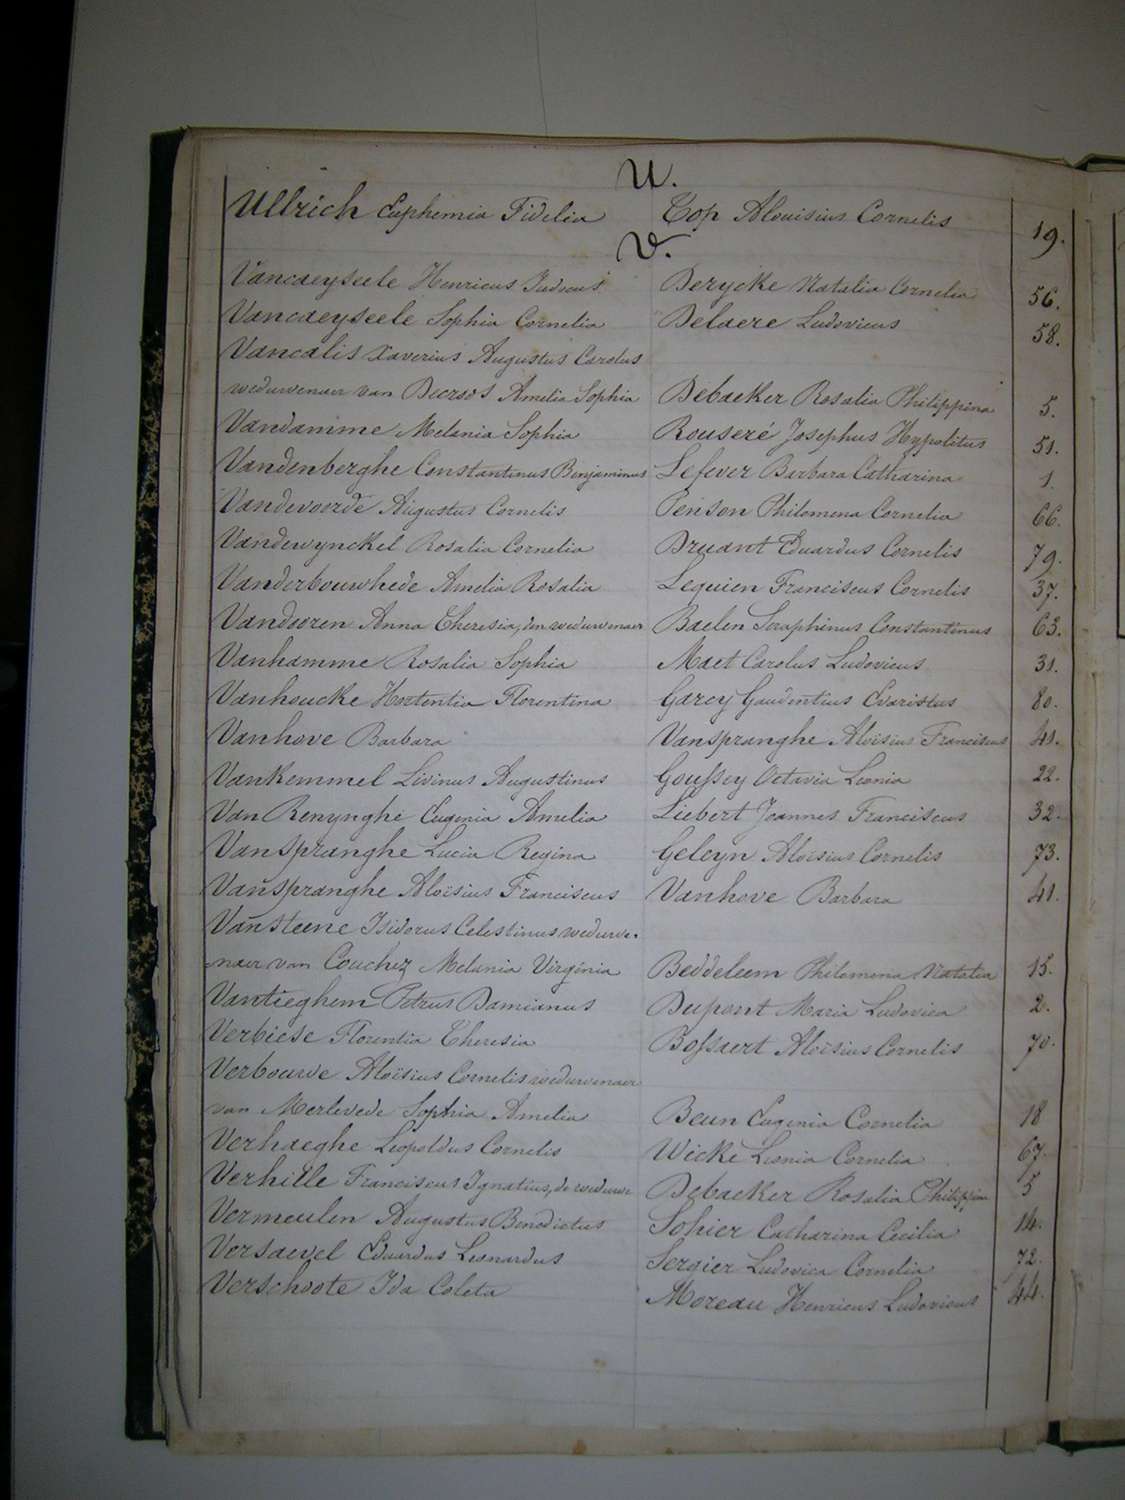 U.
Ullrich Euphemia Fidelia Top Alouisius Cornelis 19.
V.
Vancaeyseele Henricus Judocus Derycke Natalia Cornelia 56.
Vancaeyseele Sophia Cornelia Delaere Ludovicus 58.
Vancalis Xaverius Augustus Carolus
weduwenaer van Decroos Amelia Sophia Debacker Rosalia Philippina 5.
Vandamme Melania Sophia Rouseré Josephus Hypolitus 51.
Vandenberghe Constantinus Benjaminus Lefever Barbara Catharina 1.
Vandevoorde Augustus Cornelis Penson Philomena Cornelia 66.
Vandewynckel Rosalia Cornelia Bruant Eduardus Cornelis 79.
Vanderbouwhede Amelia Rosalia Lequien Franciscus Cornelis 37.
Vandooren Anna Theresia, den weduwenaer Baelen Seraphinus Constantinus 63.
Vanhamme Rosalia Sophia Maet Carolus Ludovicus 31.
Vanhoucke Hortentia Florentina Garcy Gaudentius Evaristus 80.
Vanhove Barbara Vanspranghe Aloïsius Franciscus 41.
Vankemmel Livinus Augustinus Goussey Octavia Leonia 22.
Van Renynghe Eugenia Amelia Liebert Joannes Franciscus 32.
Vanspranghe Lucia Regina Geleyn Aloïsius Cornelis 73.
Vanspranghe Aloïsius Franciscus Vanhove Barbara 41.
Vansteene Isidorus Celestinus weduwe-
naer van Couchez Melania Virginia Beddeleem Philomena Natalia 15.
Vantieghem Petrus Damianus Dupont Maria Ludovica 2.
Verbiese Florentia Theresia Bossaert Aloïsius Cornelis 70.
Verbouwe Aloïsius Cornelis weduwenaer
van Merlevede Sophia Amelia Beun Eugenia Cornelia 18
Verhaeghe Leopoldus Cornelis Wicke Leonia Cornelia 67.
Verhille Franciscus Ignatius, de weduwe Debacker Rosalia Philippina 5
Vermeulen Augustus Benedictus Sohier Catharina Cecilia 14.
Versaevel Eduardus Leonardus Sergier Ludovica Cornelia 72.
Verschoote Ida Coleta Moreau Henricus Ludovicus 44.